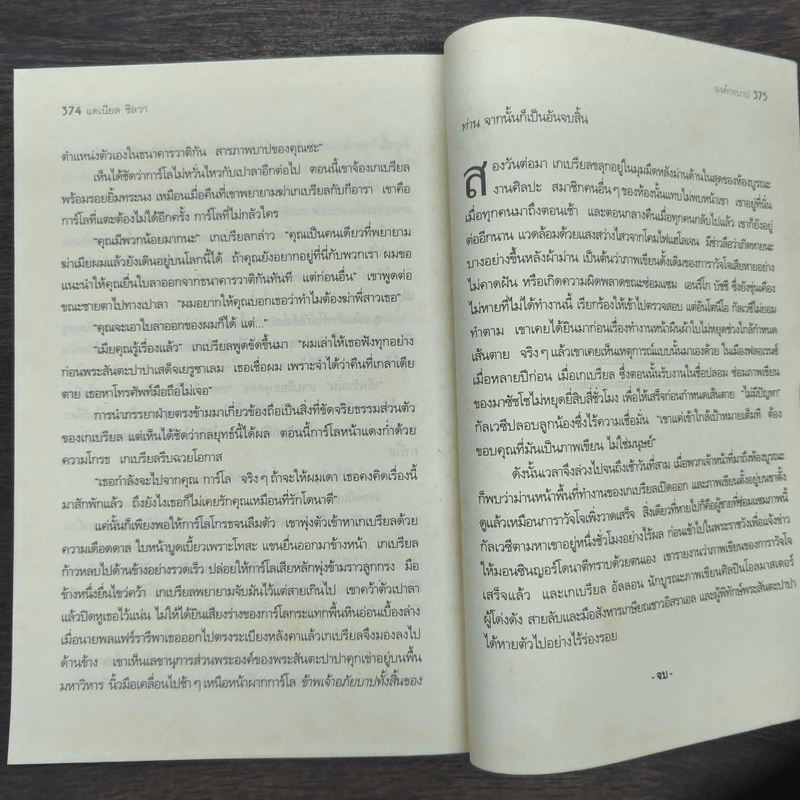 374 แดเนียล ซิลวา
ตำแหน่งตัวเองในธนาคารวาติกัน สารภาพบาปของคุณซะ"
เห็นได้ชัดว่าการ์โลไม่หวั่นไหวกับเปาลาอีกต่อไป ตอนนี้เขาจ้องเกเบรียล
พร้อมรอยยิ้มทระนง เหมือนเมื่อคืนที่เขาพยายามฆ่าเกเบรียลกับกีอารา เขาคือ
การ์โลที่แตะต้องไม่ได้อีกครั้ง การ์โลที่ไม่กลัวใคร
"คุณมีพวกน้อยมากนะ" เกเบรียลกล่าว "คุณเป็นคนเดียวที่พยายาม
ฆ่าเมียผมแล้วยังเดินอยู่บนโลกนี้ได้ ถ้าคุณยังอยากอยู่ที่นี่กับพวกเรา ผมขอ
แนะนำให้คุณยื่นใบลาออกจากธนาคารวาติกันทันที แต่ก่อนอื่น" เขาพูดต่อ
ขณะชายตาไปทางเปาลา "ผมอยากให้คุณบอกเธอว่าทำไมต้องฆ่าพี่สาวเธอ"
"คุณจะเอาใบลาออกของผมก็ได้ แต่..."
"เมียคุณรู้เรื่องแล้ว" เกเบรียลพูดขัดขึ้นมา "ผมเล่าให้เธอฟังทุกอย่าง
ก่อนพระสันตะปาปาเสด็จเยรูซาเลม เธอเชื่อผม เพราะจำได้ว่าคืนที่เกลาเดีย
ตาย เธอหาโทรศัพท์มือถือไม่เจอ"
การนำภรรยาฝ่ายตรงข้ามมาเกี่ยวข้องถือเป็นสิ่งที่ขัดจริยธรรมส่วนตัว
ของเกเบรียล แต่เห็นได้ชัดว่ากลยุทธ์นี้ได้ผล ตอนนี้การ์โลหน้าแดงก่ำด้วย
ความโกรธ เกเบรียลรีบฉวยโอกาส
"เธอกำลังจะไปจากคุณ การ์โล จริงๆ ถ้าจะให้ผมเดา เธอคงคิดเรื่องนี้
มาสักพักแล้ว ถึงยังไงเธอก็ไม่เคยรักคุณเหมือนที่รักโดนาตี"
แค่นั้นก็เพียงพอให้การ์โลโกรธจนลืมตัว เขาพุ่งตัวเข้าหาเกเบรียลด้วย
ความเดือดดาล ใบหน้าบูดเบี้ยวเพราะโทสะ แขนยื่นออกมาข้างหน้า เกเบรียล
ก้าวหลบไปด้านข้างอย่างรวดเร็ว ปล่อยให้การ์โลเสียหลักพุ่งข้ามราวลูกกรง มือ
ข้างหนึ่งยื่นไขว่คว้า เกเบรียลพยายามจับมันไว้แต่สายเกินไป เขาคว้าตัวเปาลา
แล้วปิดหูเธอไว้แน่น ไม่ให้ได้ยินเสียงร่างของการ์โลกระแทกพื้นหินอ่อนเบื้องล่าง
เมื่อนายพลแฟร์รารีพาเธอออกไปตรงระเบียงหลังคาแล้วเกเบรียลจึงมองลงไป
ด้านข้าง เขาเห็นเลขานุการส่วนพระองค์ของพระสันตะปาปาคุกเข่าอยู่บนพื้น
มหาวิหาร นิ้วมือเคลื่อนไปช้าๆ เหนือหน้าผากการ์โล ข้าพเจ้าอภัยบาปทั้งสิ้นของ
องค์กรบาป 375
ท่าน จากนั้นก็เป็นอันจบสิ้น
สองวันต่อมา เกเบรียลขลุกอยู่ในมุมมืดหลังม่านด้านในสุดของห้องบูรณะ
งานศิลปะ สมาชิกคนอื่นๆ ของห้องนั้นแทบไม่พบหน้าเขา เขาอยู่ที่นั่น
เมื่อทุกคนมาถึงตอนเช้า และตอนกลางคืนเมื่อทุกคนกลับไปแล้ว เขาก็ยังอยู่
ต่ออีกนาน แวดล้อมด้วยแสงสว่างไสวจากโคมไฟแฮโลเจน มีข่าวลือว่าเกิดหายนะ
บางอย่างขึ้นหลังผ้าม่าน เป็นต้นว่าภาพเขียนดั้งเดิมของการาวัจโจเสียหายอย่าง
ไม่คาดฝัน หรือเกิดความผิดพลาดขณะซ่อมแซม เอนริโก บัชชี ซึ่งยังขุ่นเคือง
ไม่หายที่ไม่ได้ทำงานนี้ เรียกร้องให้เข้าไปตรวจสอบ แต่อันโตนิโอ กัลเวซีไม่ยอม
ทำตาม เขาเคยได้ยินมาก่อนเรื่องทำงานหน้าผืนผ้าใบไม่หยุดช่วงใกล้กำหนด
เส้นตาย จริงๆ แล้วเขาเคยเห็นเหตุการณ์แบบนั้นมาเองด้วย ในเมืองฟลอเรนซ์
เมื่อหลายปีก่อน เมื่อเกเบรียล ซึ่งตอนนั้นรับงานในชื่อปลอม ซ่อมภาพเขียน
ของมาซัชโชไม่หยุดยี่สิบสี่ชั่วโมง เพื่อให้เสร็จก่อนกำหนดเส้นตาย "ไม่มีปัญหา"
กัลเวซีปลอบลูกน้องซึ่งไร้ความเชื่อมั่น "เขาแค่เข้าใกล้เป้าหมายเต็มที ต้อง
ขอบคุณที่มันเป็นภาพเขียน ไม่ใช่มนุษย์"
ดังนั้นเวลาจึงล่วงไปจนถึงเช้าวันที่สาม เมื่อพวกเจ้าหน้าที่มาถึงห้องบูรณะ
ก็พบว่าม่านหน้าพื้นที่ทำงานของเกเบรียลเปิดออก และภาพเขียนตั้งอยู่บนขาตั้ง
ดูแล้วเหมือนการาวัจโจเพิ่งวาดเสร็จ สิ่งเดียวที่หายไปก็คือผู้ชายที่ซ่อมแซมภาพนี้
กัลเวซีตามหาเขาอยู่หนึ่งชั่วโมงอย่างไร้ผล ก่อนเข้าไปในพระราชวังเพื่อแจ้งข่าว
ให้มอนซินญอร์โดนาตีทราบด้วยตนเอง เขารายงานว่าภาพเขียนของการาวัจโจ
เสร็จแล้ว และเกเบรียล อัลลอน นักบูรณะภาพเขียนศิลปินโอลมาสเตอร์
ผู้โด่งดัง สายลับและมือสังหารเกษียณชาวอิสราเอล และผู้พิทักษ์พระสันตะปาปา
ได้หายตัวไปอย่างไร้ร่องรอย
- จบ -